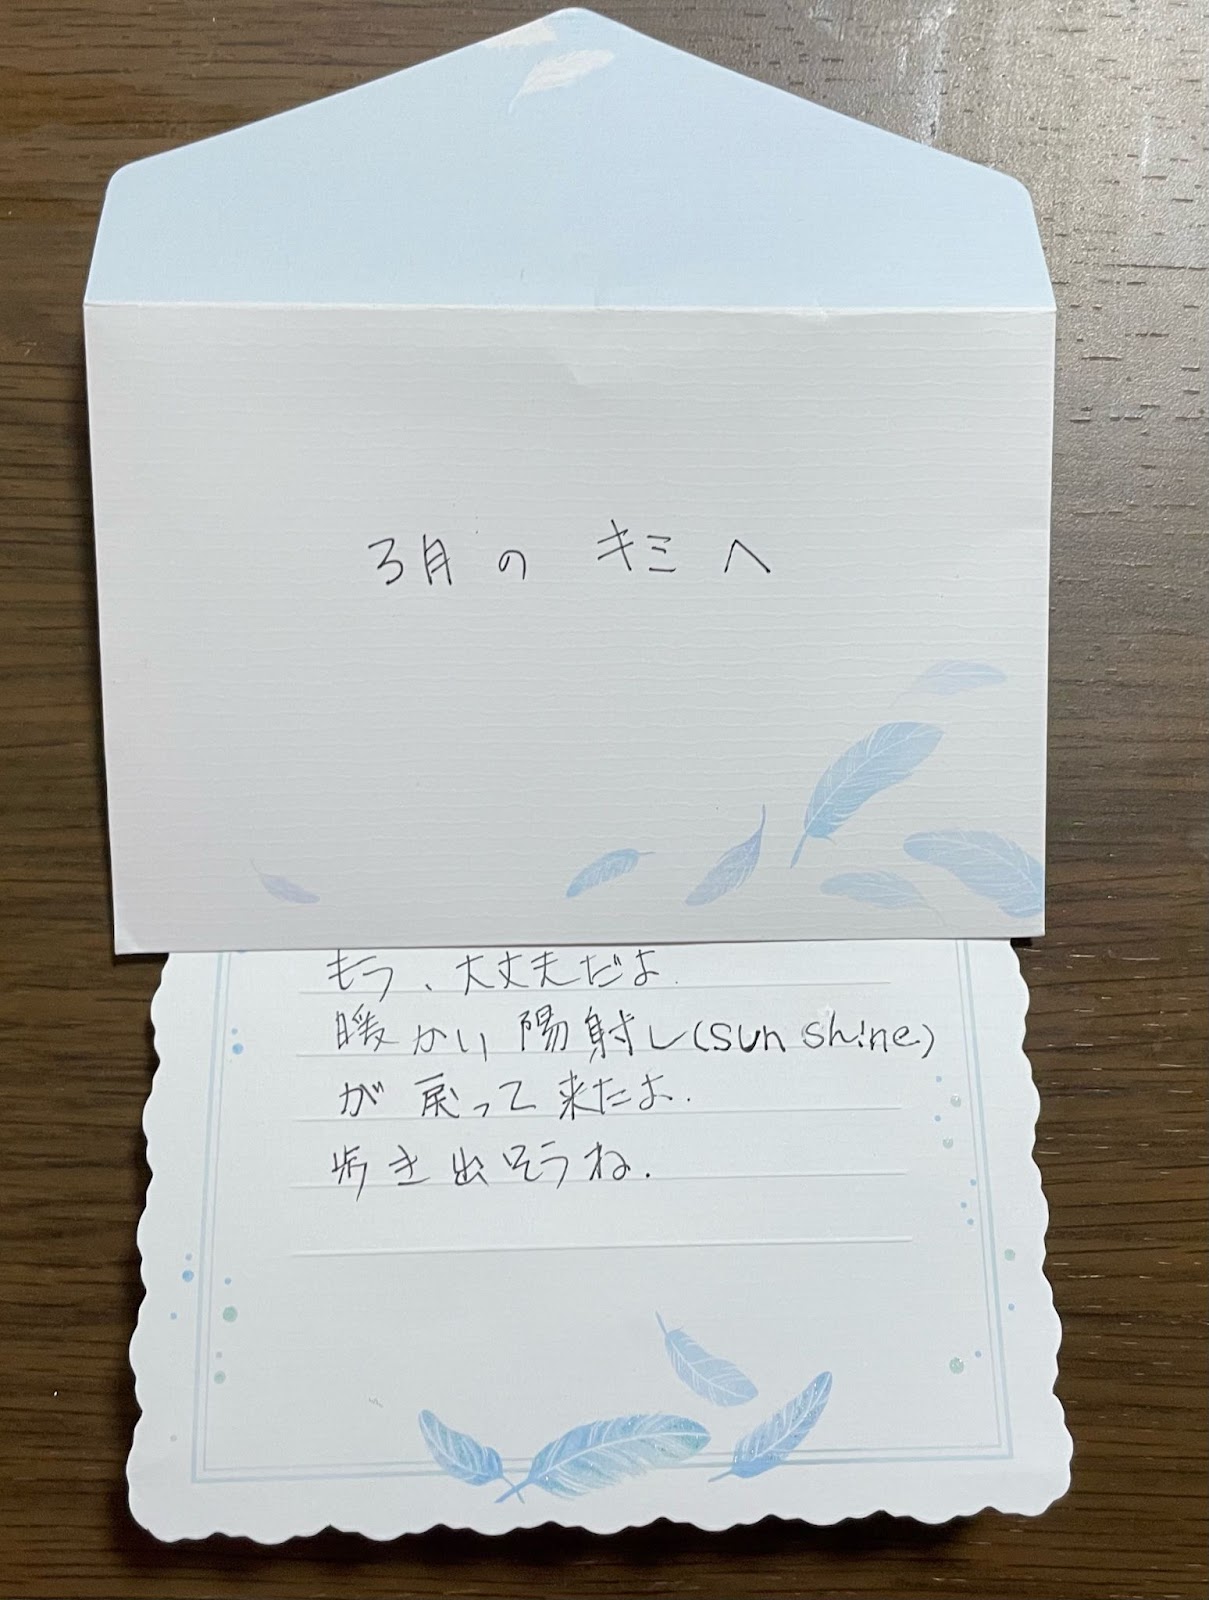 3月の キミへ
もう、大丈夫だよ.
暖かい陽射し(sun shine)
が戻って来たよ.
歩き出そうね.